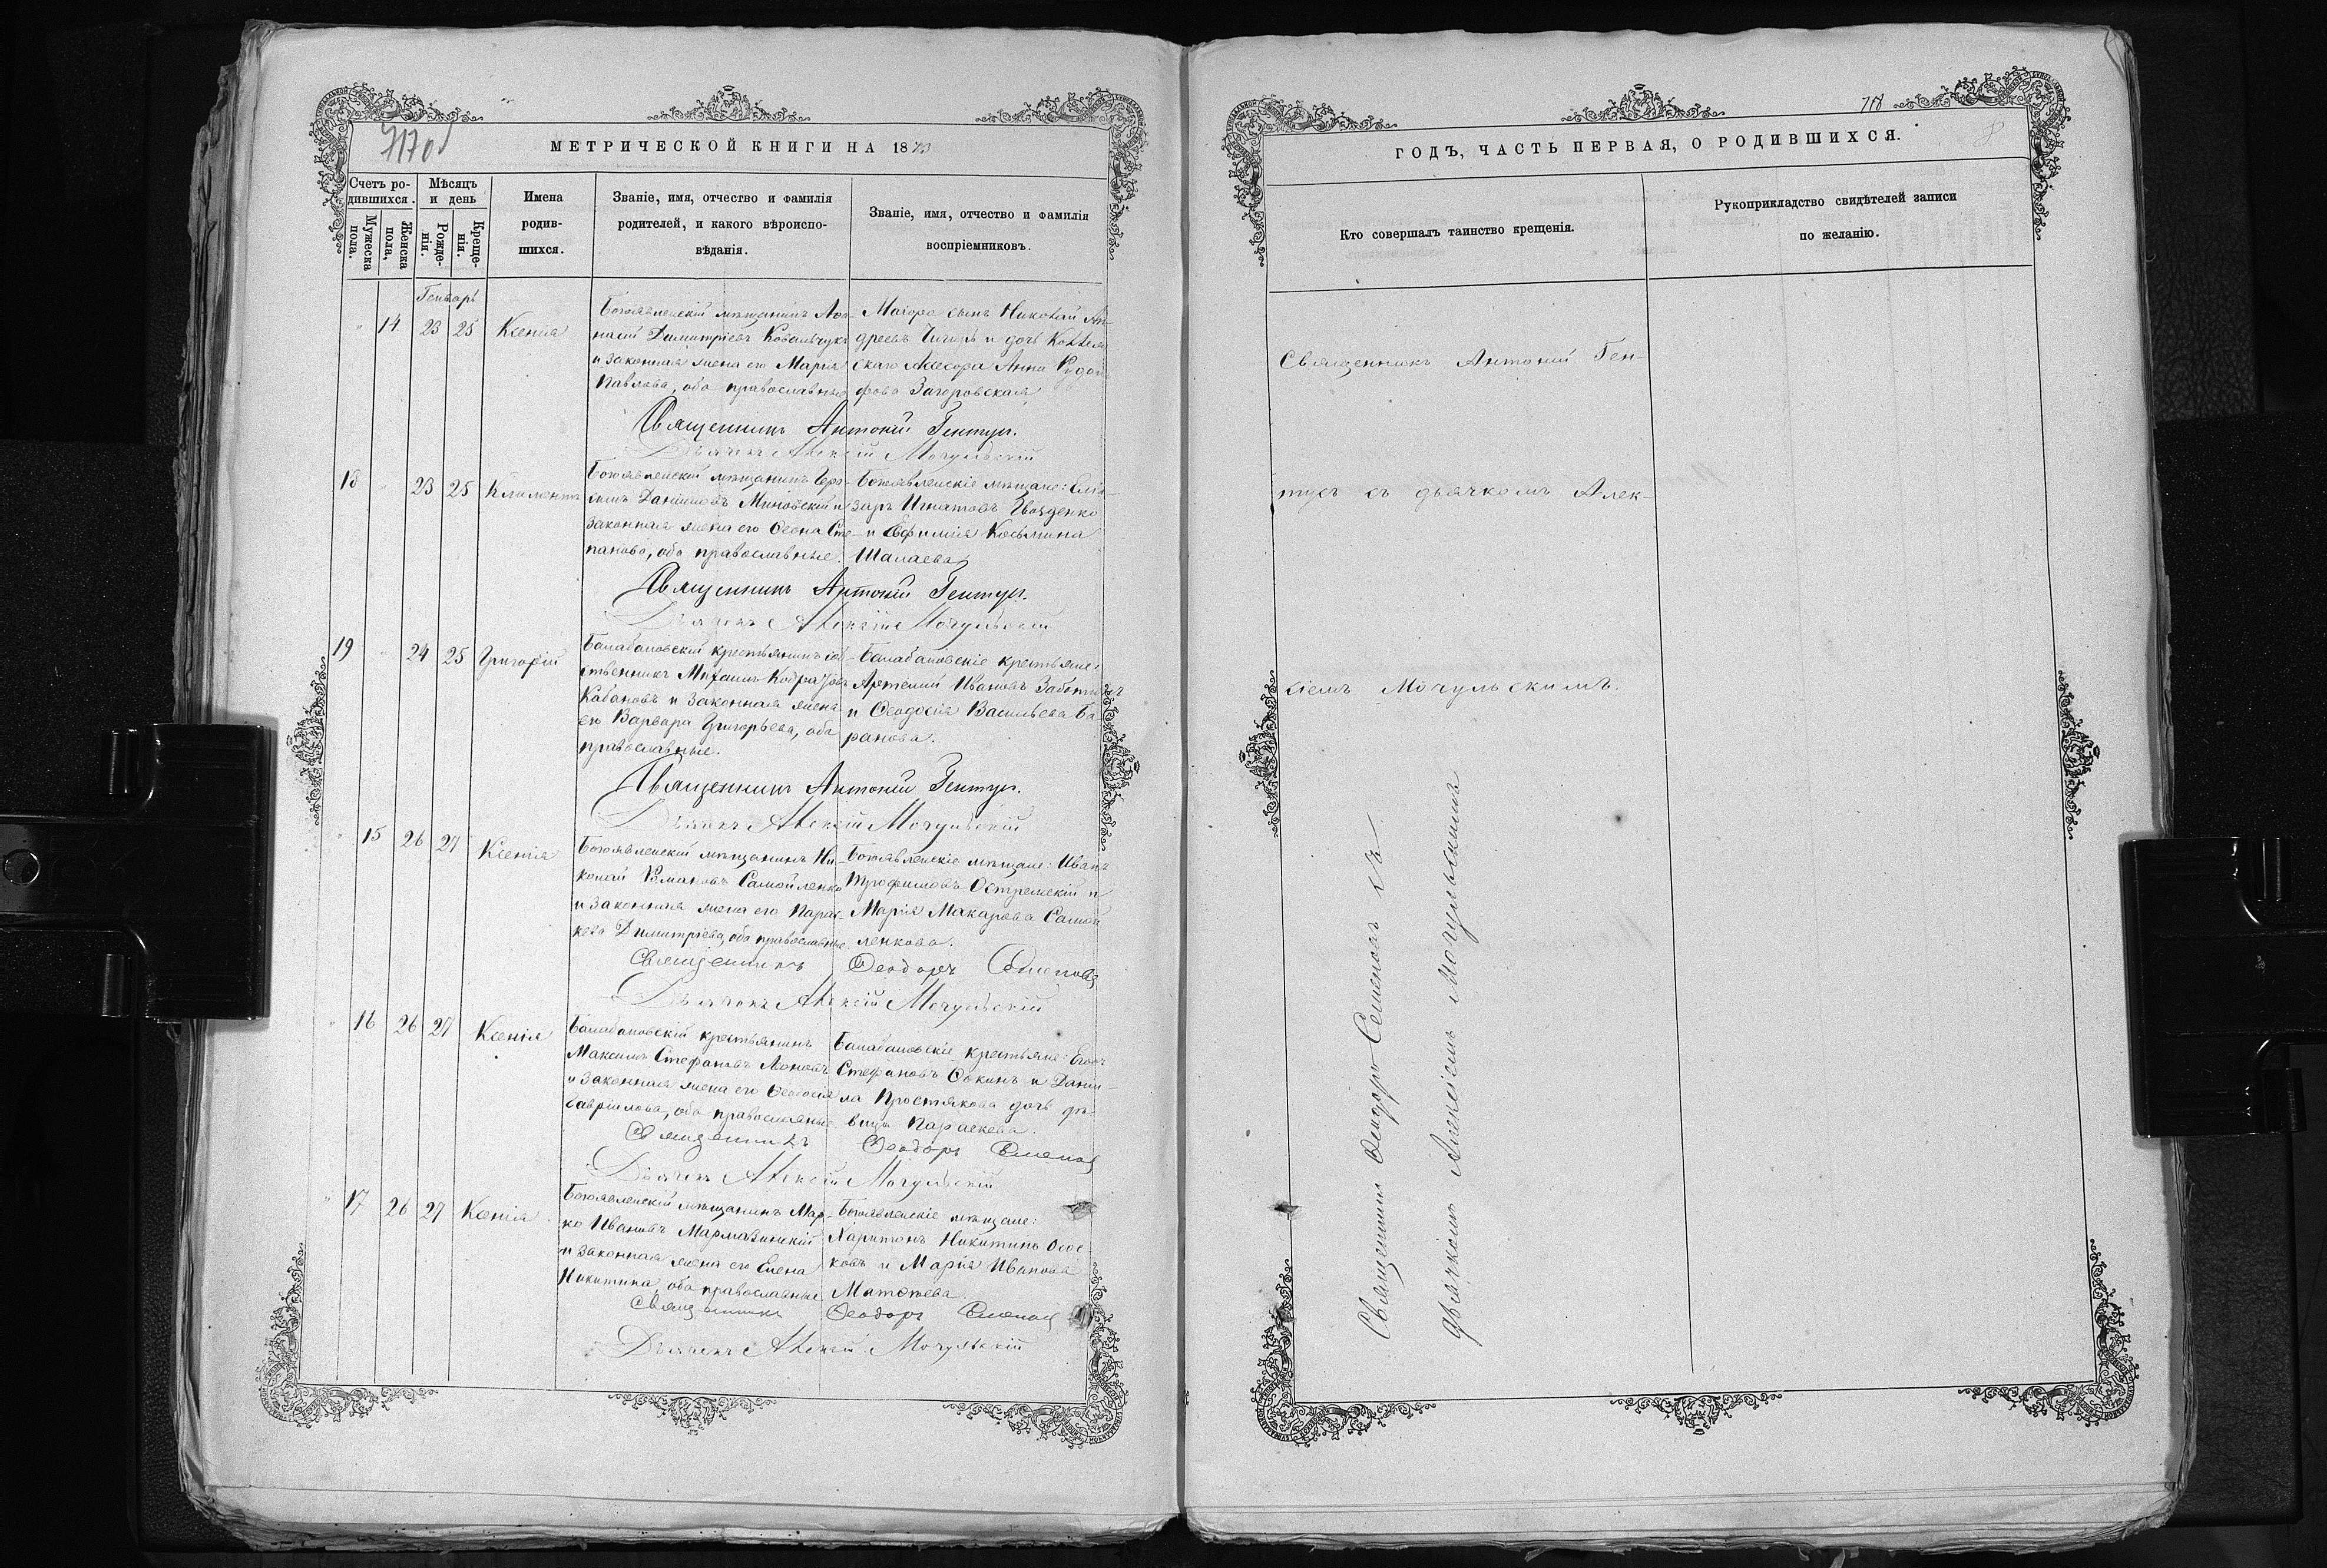 717об
МЕТРИЧЕСКОЙ КНИГИ НА 1873
Счетъ ро-
дившихся.
Мужеска
пола.
Женска
пола,
Мѣсяцъ
и день
Рожде-
нія.
Креще-
нія.
Имена
родив-
шихся.
Званіе, имя, отчество и фамилія
родителей, и какого вѣроиспо-
вѣданія.
Званіе, имя, отчество и фамилія
воспріемниковъ.
Генварь
14 23 25 Ксенія
Богоявленскій мѣщанинъ
Димитріевъ Ковальчукъ
и законная жена его Марія
Павлова, оба православные
Маіора сынъ Николай Ан-
древъ Чигирь и дочь Коллеж
скаго Ассесора Анна
Загоровская
Священникъ Антоній Гентуш.
Дьячекъ Алексій Мочульскій
18 23 25 Климентъ
Богоявленскій мѣщанинъ Гера-
симъ Даниловъ Миновскій и
законная жена его Ѳеона Сте-
панова, оба православные.
Богоявленскіе мѣщане: Елиа-
заръ Игнатовъ Гвозденко
и Евфимія Косьмина
Шалаева
Священникъ Антоній Гентуш.
Дьячекъ Алексій Мочульскій
19 24 25 Григорій
Балабановскій крестьянинъ соб-
ственникъ Михаилъ Кодратовъ
Кабановъ и законная жена
его Варвара Григорьева, оба
православные.
Балабановскіе крестьяне:
Артемій Ивановъ Заботинъ
и Ѳеодосія Васильева Ба
ранова.
Священникъ Антоній Гентуш.
Дьячекъ Алексій Мочульскій
15 26 27 Ксенія
Богоявленскій мѣщанинъ Ни-
колай Романовъ Самойленко
и законная жена его Парас-
кева Димитріева, оба православные
Богоявленскіе мѣщане: Иванъ
Трофимовъ Остремскій и
Марія Макарова Самой
ленкова.
Священникъ Ѳеодоръ Семеновъ
Дьячекъ Алексій Мочульскій
16 26 27 Ксенія
Балабановскій крестьянинъ
Максимъ Стефановъ Лоновъ
и законная жена его Ѳеодосія
Гавріилова, оба православные
Балабановскіе крестьяне: Егоръ
Стефановъ Ѳокинъ и Дани-
ла Простякова дочь дѣ-
вица Параскева.
Священникъ Ѳеодоръ Семеновъ
Дьячекъ Алексій Мочульскій
17 26 27 Ксенія
Богоявленскій мѣщанинъ Мар-
ко Ивановъ Мармазинскій
и законная жена его Елена
Никитина, оба православные
Богоявленскіе мѣщане:
Харитонъ Никитинъ
ковъ и Марія Иванова
Матотева.
Священникъ Ѳеодоръ Семеновъ
Дьячекъ Алексій Мочульскій
718
8
ГОДЪ, ЧАСТЬ ПЕРВАЯ, О РОДИВШИХСЯ.
Кто совершалъ таинство крещенія.
Рукоприкладство свидѣтелей записи
по желанію.
Священникъ Антоній Ген-
тушъ съ дьячкомъ Алек-
сіемъ Мочульскимъ.
Священникъ Ѳеодоръ Семеновъ съ
дьячкомъ Алексіемъ Мочульскимъ